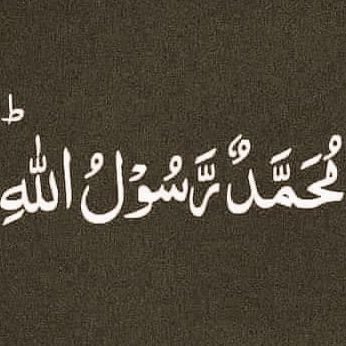 مُحَمَّدٌ رَّسُوْلُ اللّٰهِ ؕ